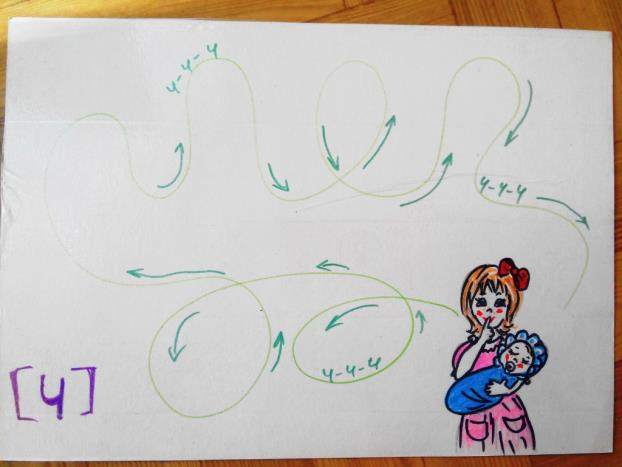 ч-ч-ч
ч-ч-ч
ч-ч-ч
[ч]